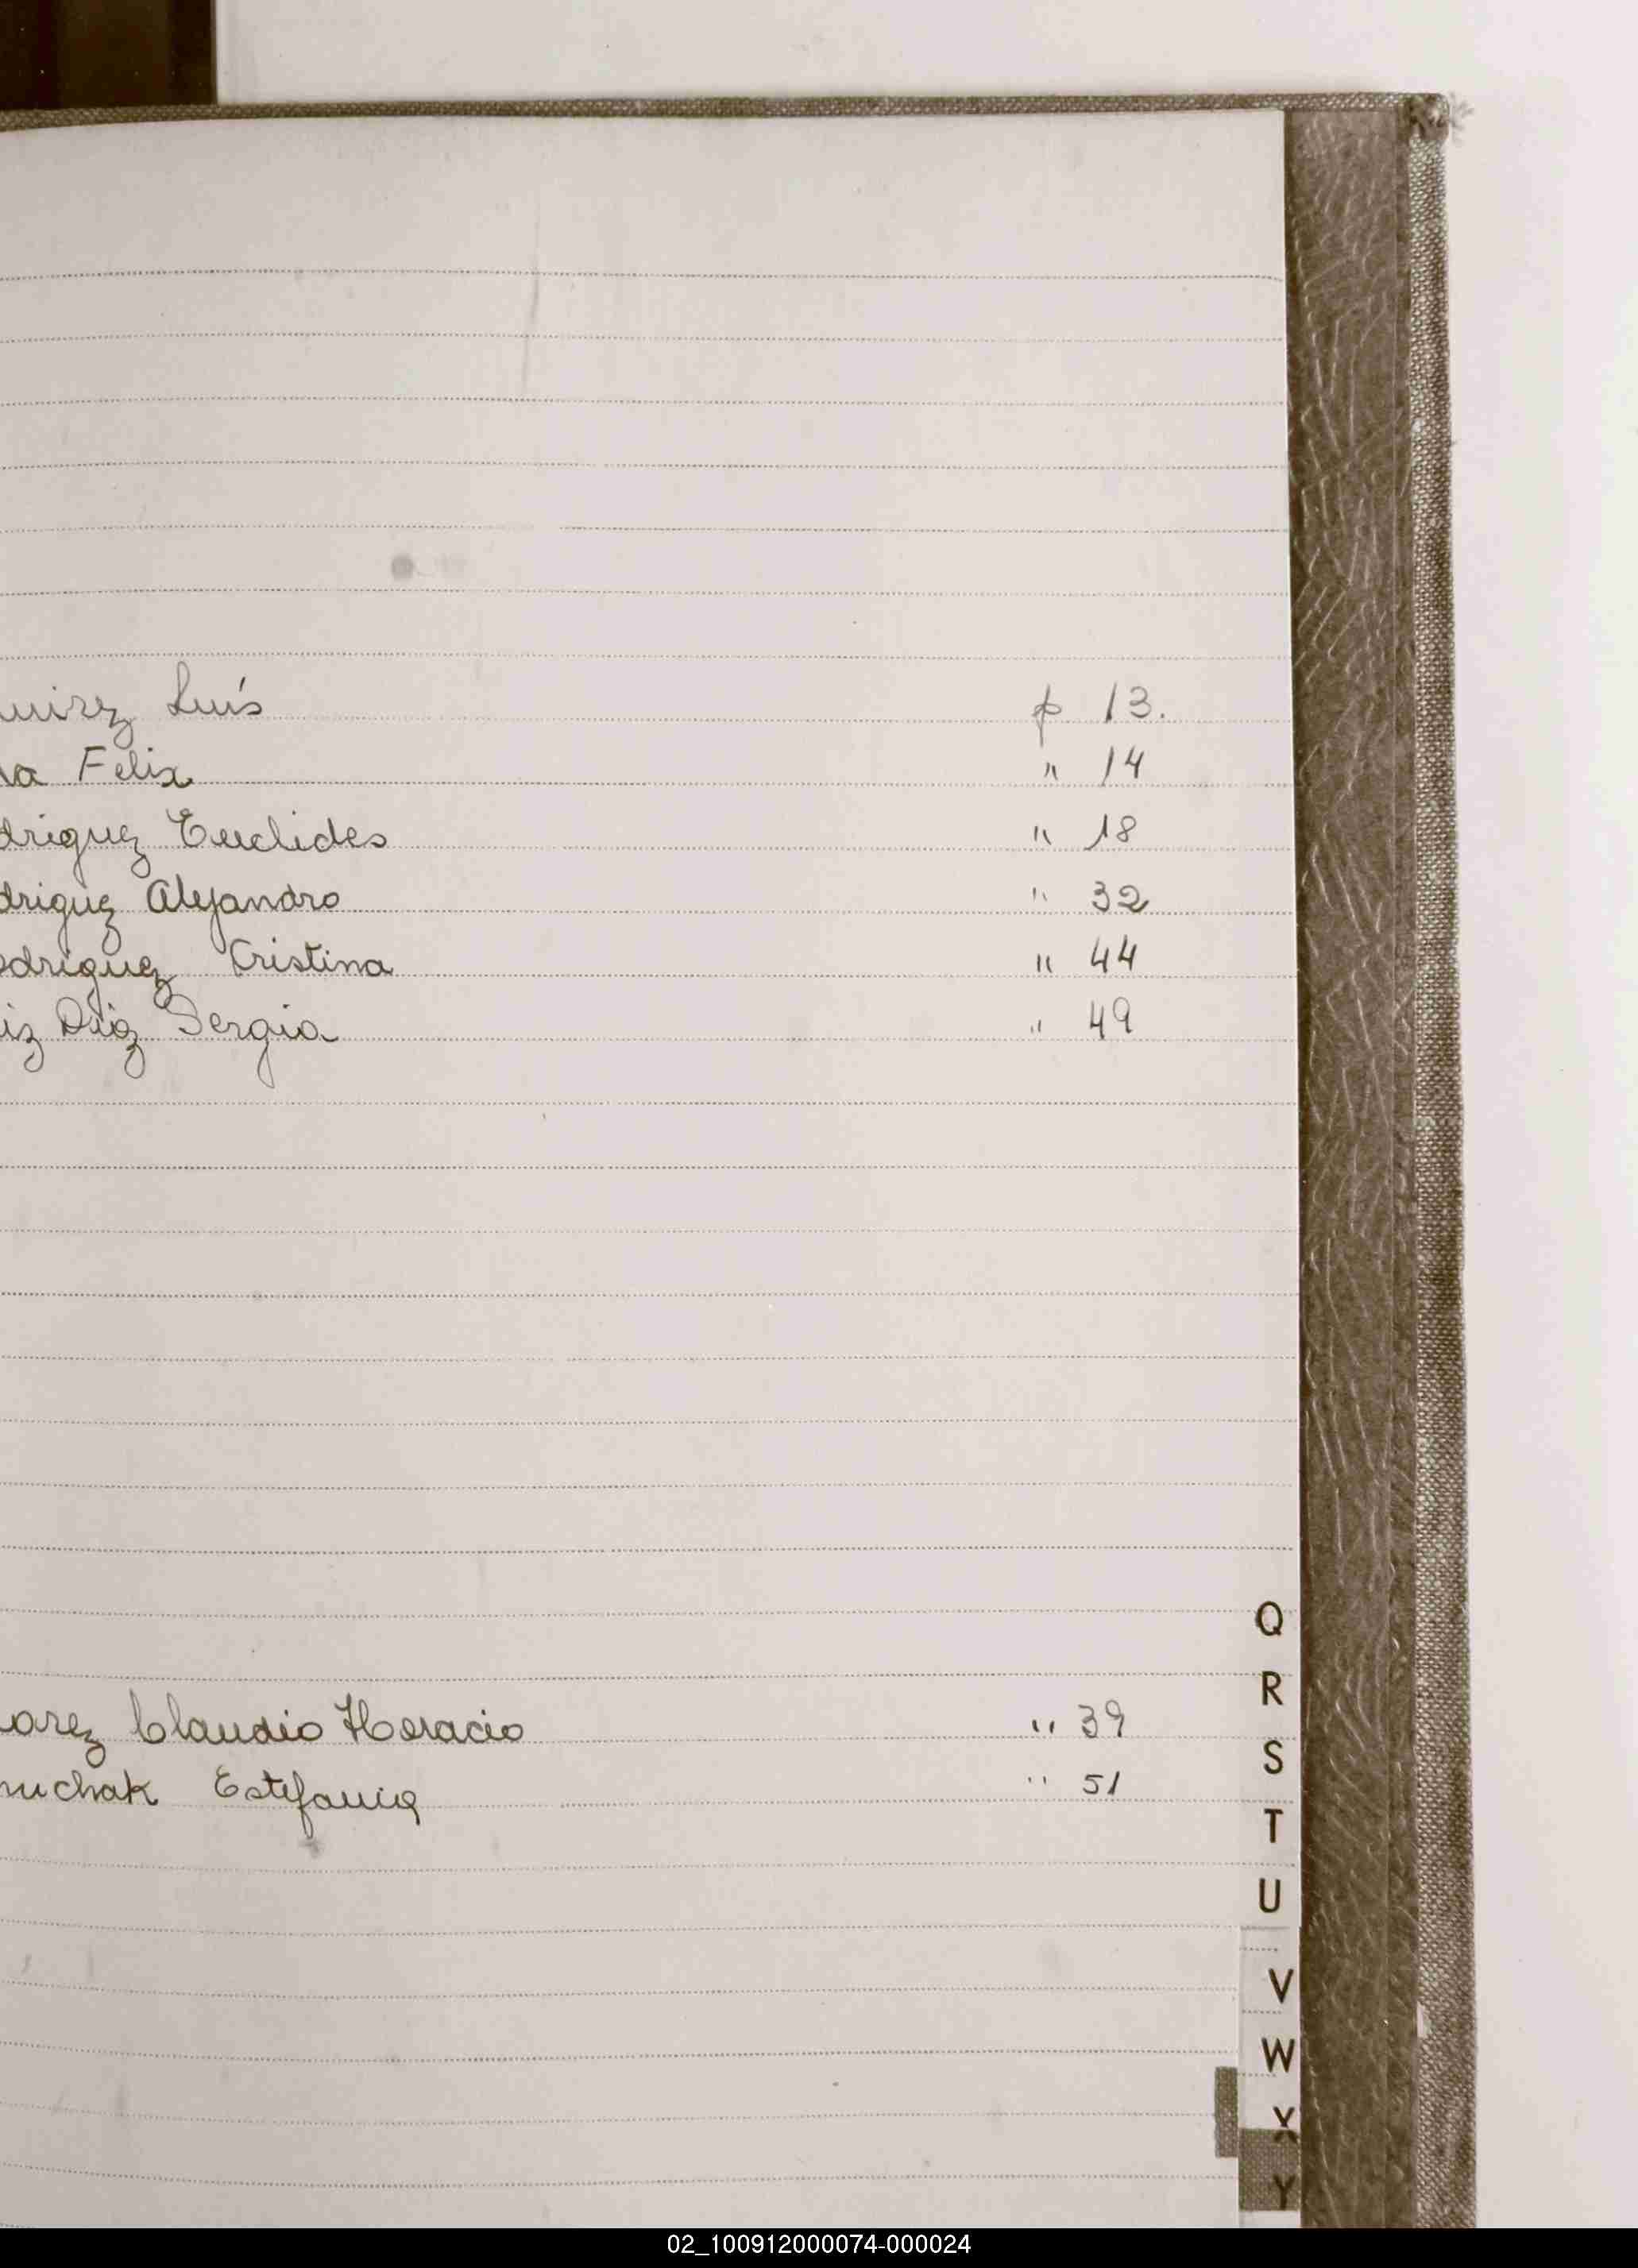 uirez Luís p 13.
va Felix " 14
driguez Euclides " 18
driguez Alejandro " 32
odriguez Cristina " 44
iz Diaz Sergia " 49
arez Claudio Horacio " 39
uchak Estefania " 51
Q
R
S
T
U
V
W
X
Y
02_100912000074-000024